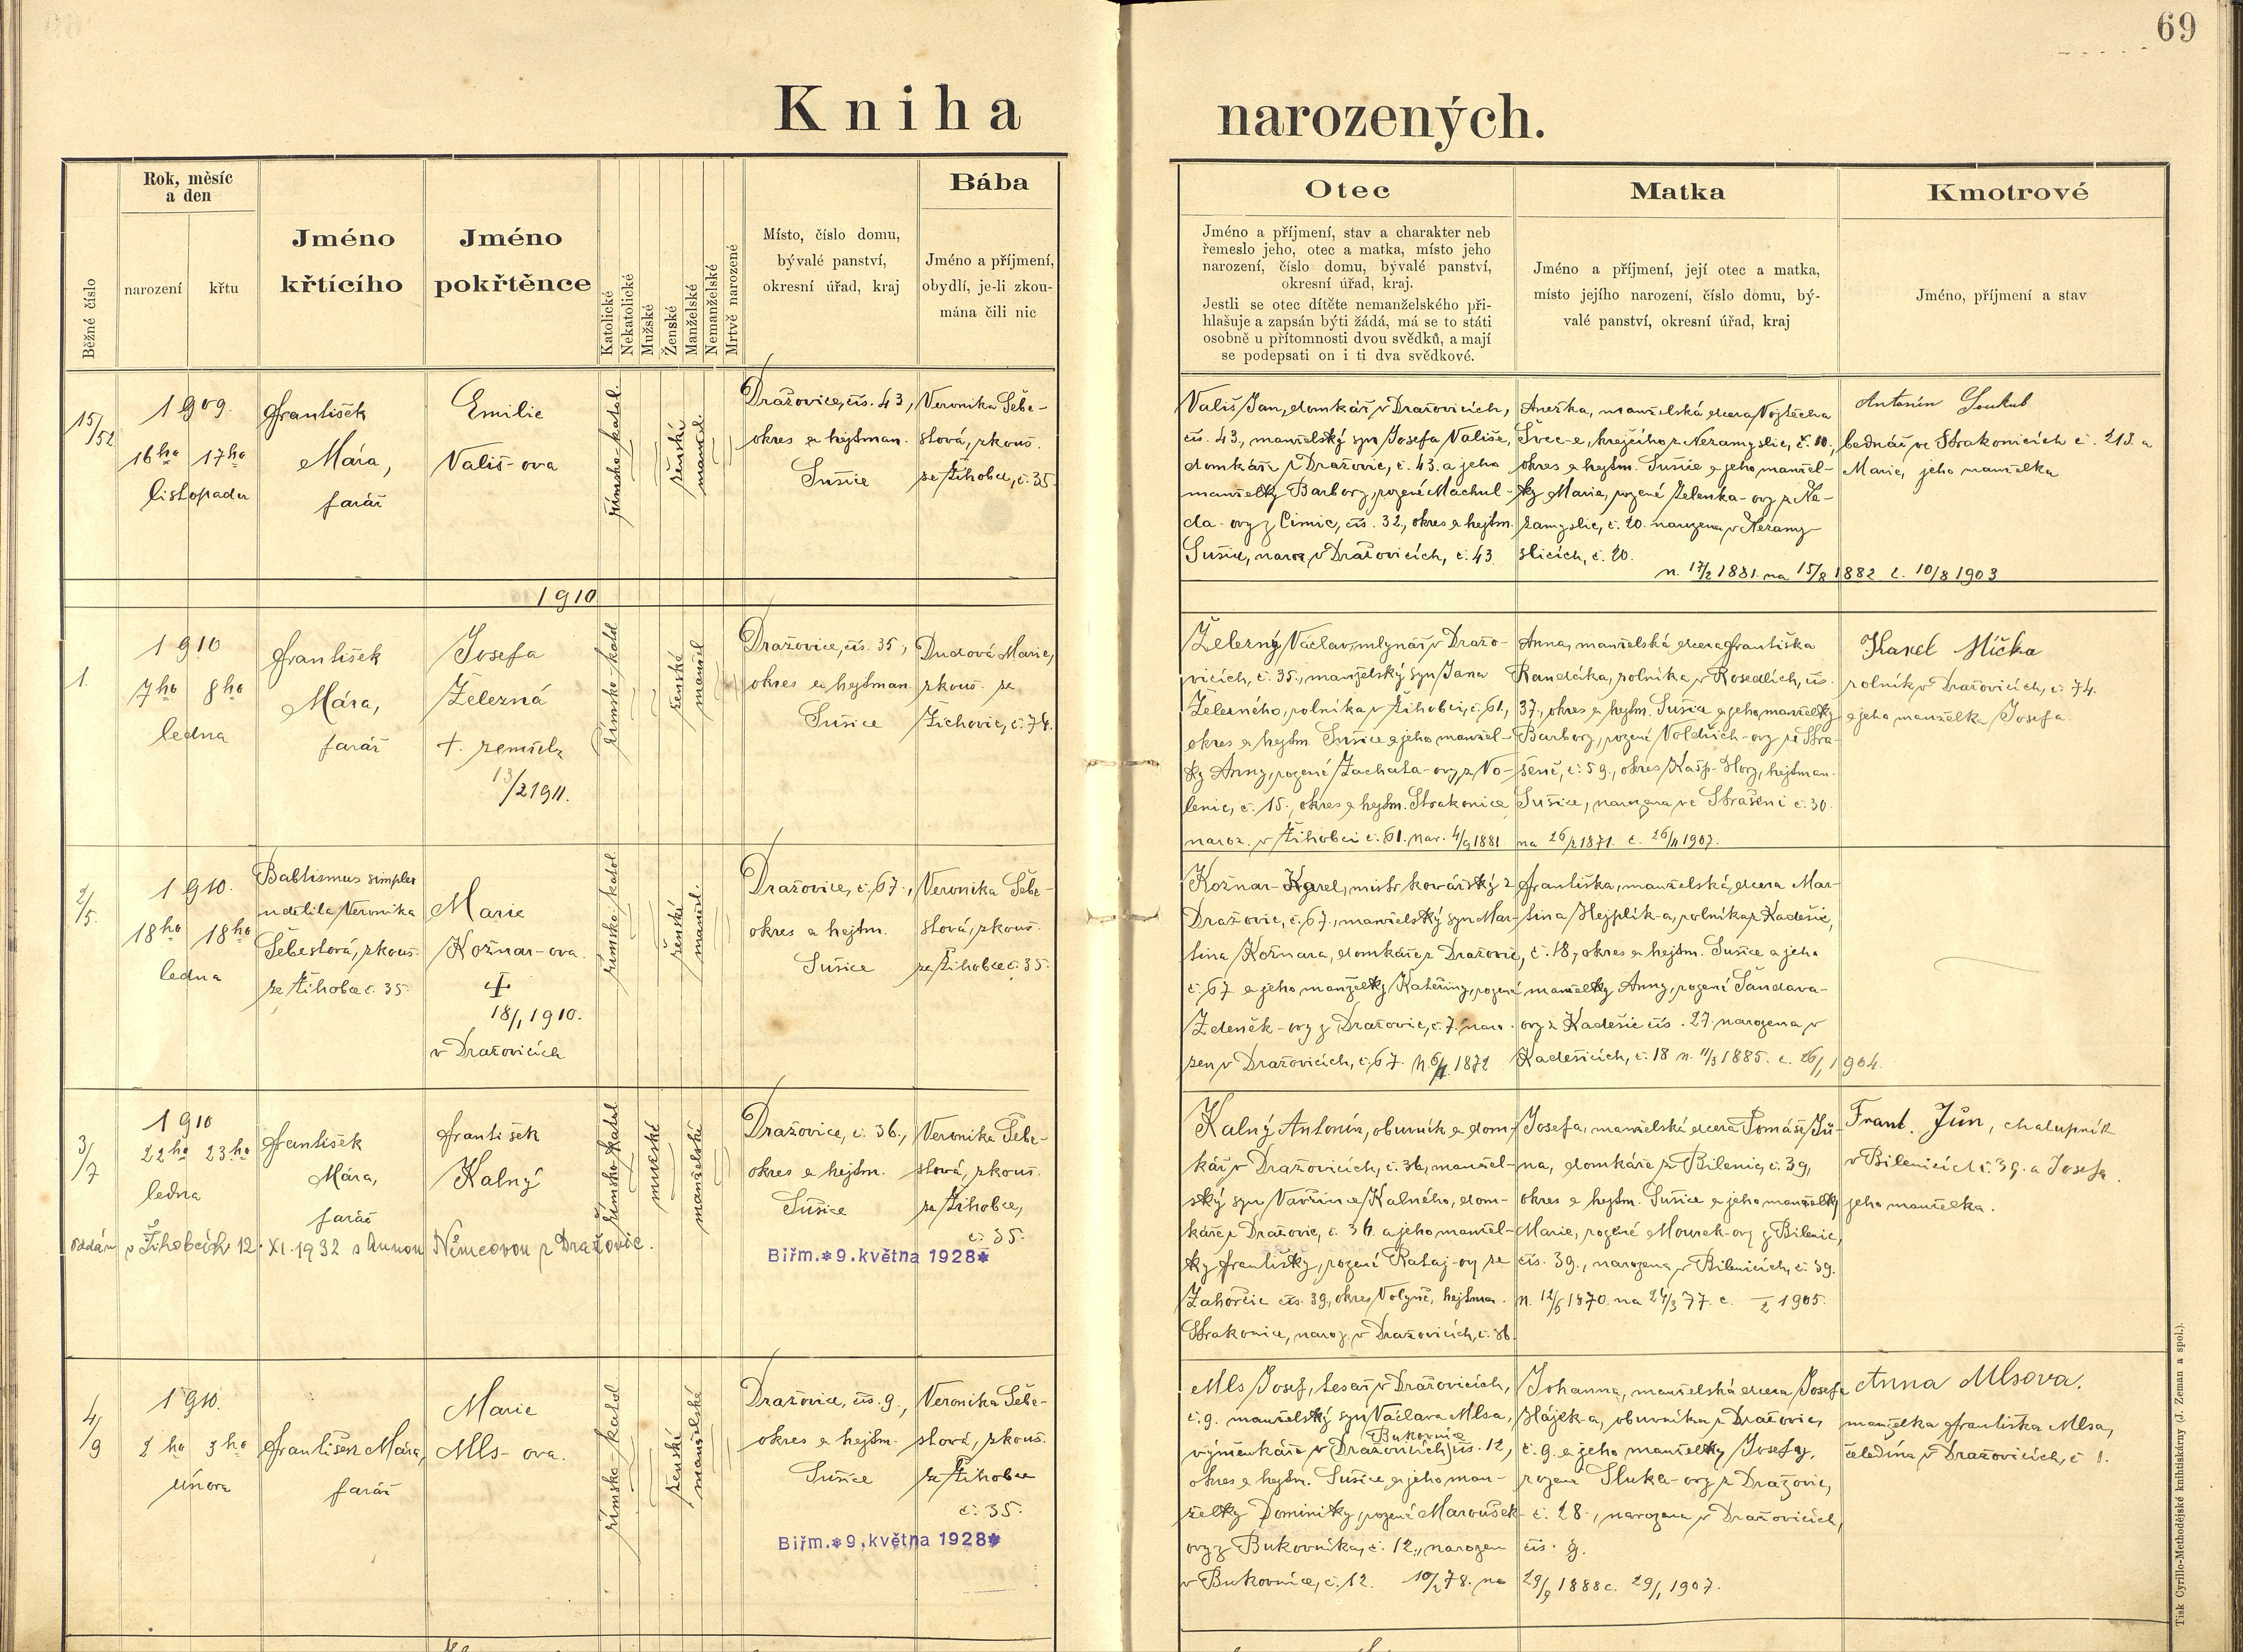 69
Kniha narozených.
Běžné číslo
Rok, měsíc
a den
narození
křtu
Jméno
křtícího
Jméno
pokřtěnce
Katolické
Nekatolické
Mužské
Ženské
Manželské
Nemanželské
Mrtvě narozené
Místo, číslo domu,
bývalé panství,
okresní úřad, kraj
Bába
Jméno a příjmení,
obydlí, je-li zkou-
mána čili nic
Otec
Jméno a příjmení, stav a charakter neb
řemeslo jeho, otec a matka, místo jeho
narození, číslo domu, bývalé panství,
okresní úřad, kraj.
Jestli se otec dítěte nemanželského při-
hlašuje a zapsán býti žádá, má se to státi
osobně u přítomnosti dvou svědků, a mají
se podepsati on i ti dva svědkové.
Matka
Jméno a příjmení, její otec a matka,
místo jejího narození, číslo domu, bý-
valé panství, okresní úřad, kraj
Kmotrové
Jméno, příjmení a stav
15/52
1909.
16ho 17ho
listopadu
František
Mára,
farář
Emilie
Vališ-ova
římsko-katol.
ženské
manžel.
Dražovice, čís. 43,
okres a hejtman.
Sušice
Veronika Šebe-
stová, zkouš.
ze Žihobce, č. 35.
Vališ Jan, domkář v Dražovicích,
čís. 43., manželský syn Josefa Vališe,
domkáře z Dražovic, č. 43. a jeho
manželky Barbory, rozené Machul-
da-ovy z Čimic, čís. 32., okres a hejtm.
Sušice, naroz. v Dražovicích, č. 43.
Anežka, manželská dcera Vojtěcha
Švec-e, krejčího z Nezamyslic, č. 10,
okres a hejtm. Sušice a jeho manžel-
ky Marie, rozené Zelenka-ovy z Ne-
zamyslic, č. 20. narozena v Nezamy-
slicích, č. 20.
n. 17/2 1881. na 15/8 1882 c. 10/8 1903
Antonín Soukub
bednář ve Strakonicích č. 213. a
Marie, jeho manželka
1910
1.
1910
7ho 8ho
ledna
František
Mára,
farář
Josefa
Železná
+. zemřela
13/2 1911.
římsko-katol
ženské
manžel
Dražovice, čís. 35,
okres a hejtman.
Sušice
Dudová Marie,
zkouš. ze
Žichovic, č. 74.
Železný Václav, mlynář v Dražo-
vicích, č. 35., manželský syn Jana
Železného, rolníka v Žihobci, č. 61.,
okres a hejtm. Sušice a jeho manžel-
ky Anny, rozené Zachata-ovy z Vo-
lenic, č. 15., okres a hejtm. Strakonice
naroz. v Žihobci č. 61. nar. 4/9 1881
Anna, manželská dcera Františka
Kandrka, rolníka v Rosedlích, čís.
37., okres a hejtm. Sušice a jeho manželky
Barbory, rozené Voldřich-ovy ze Stra-
šeně, č. 59., okres Kašp. Hory, hejtman.
Sušice, narozena ve Strašeni č. 30.
na 26/2 1871. c. 26/11 1907.
Karel Míčka
rolník v Dražovicích, č. 74.
a jeho manželka Josefa.
2/5.
1910.
18ho 18ho
ledna
Babtismus simplex
udělila Veronika
Šebestová, zkouš.
ze Žihobce č. 35.
Marie
Kožnar-ova.
+
18/1 1910.
v Dražovicích.
římsko-katol.
ženské
manžel.
Dražovice, č. 67.,
okres a hejtm.
Sušice
Veronika Šebe-
stová, zkouš.
ze Žihobce č. 35.
Kožnar-Karel, mistr kovářský z
Dražovic, č. 67., manželský syn Mar-
tina Kožnara, domkáře z Dražovic,
č. 67 a jeho manželky Kateřiny, rozené
Zdeněk-ovy z Dražovic, č. 7. naro-
zen v Dražovicích, č. 67. n. 6/11 1872
Františka, manželská dcera Mar-
tina Hejplík-a, rolníka z Kadešic,
č. 18, okres a hejtm. Sušice a jeho
manželky Anny, rozené Šandara-
ovy z Kadešic čís. 27. narozena v
Kadešicích, č. 18 n. 11/3 1885. c. 26/1 1904.
3/7
1910
22ho 23ho
ledna
František
Mára,
farář
František
Kalný
římsko-katol
mužské
manželské
Dražovice, č. 36.,
okres a hejtm.
Sušice
Veronika Šebe-
stová, zkouš.
ze Žihobce,
č. 35.
oddán v Žihobcích 12. XI. 1932 s Annou Němcovou z Dražovic.
Biřm.*9.května 1928*
Kalný Antonín, obuvník a dom-
kář v Dražovicích, č. 36, manžel-
ský syn Vavřince Kalného, dom-
káře z Dražovic, č. 36. a jeho manžel-
ky Františky, rozené Rataj-ovy ze
Zahorčic čís. 39., okres Volyně, hejtman.
Strakonice, naroz. v Dražovicích, č. 36.
Josefa, manželská dcera Tomáše Jů-
na, domkáře z Bilenic, č. 39,
okres a hejtm. Sušice a jeho manželky
Marie, rozené Mourek-ovy z Bilenic,
čís. 39., narozena v Bilenicích, č. 39.
n. 12/6 1870. na 24/3 77. c. /2 1905.
Frant. Jůn, chalupník
v Bilenicích č. 39. a Josefa
jeho manželka.
4/9
1910.
2ho 3ho
února
František Mára,
farář
Marie
Mls-ova.
římsko-katol
ženské
manželské
Dražovice, čís. 9.,
okres a hejtm.
Sušice
Veronika Šebe-
stová, zkouš.
ze Žihobce
č. 35.
Biřm.*9.května 1928*
Mls Josef, tesař v Dražovicích,
č. 9. manželský syn Václava Mlsa,
Bukovníc
výměnkáře v Dražovicích čís. 12,
okres a hejtm. Sušice a jeho man-
želky Dominiky, rozené Maroušek-
ovy z Bukovníka, č. 12., narozen
v Bukovníce, č. 12. 10/2 78. na
Johanna, manželská dcera Josefa
Hájek-a, obuvníka z Dražovic,
č. 9. a jeho manželky Josefy,
rozené Sluka-ovy z Dražovic,
č. 28., narozena v Dražovicích,
čís. 9.
29/9 1888 c. 29/1 1907.
Anna Mlsova.
manželka Františka Mlsa,
čeledína v Dražovicích, č 1.
Tisk Cyrillo-Methodějské knihtiskárny (J. Zeman a spol.).